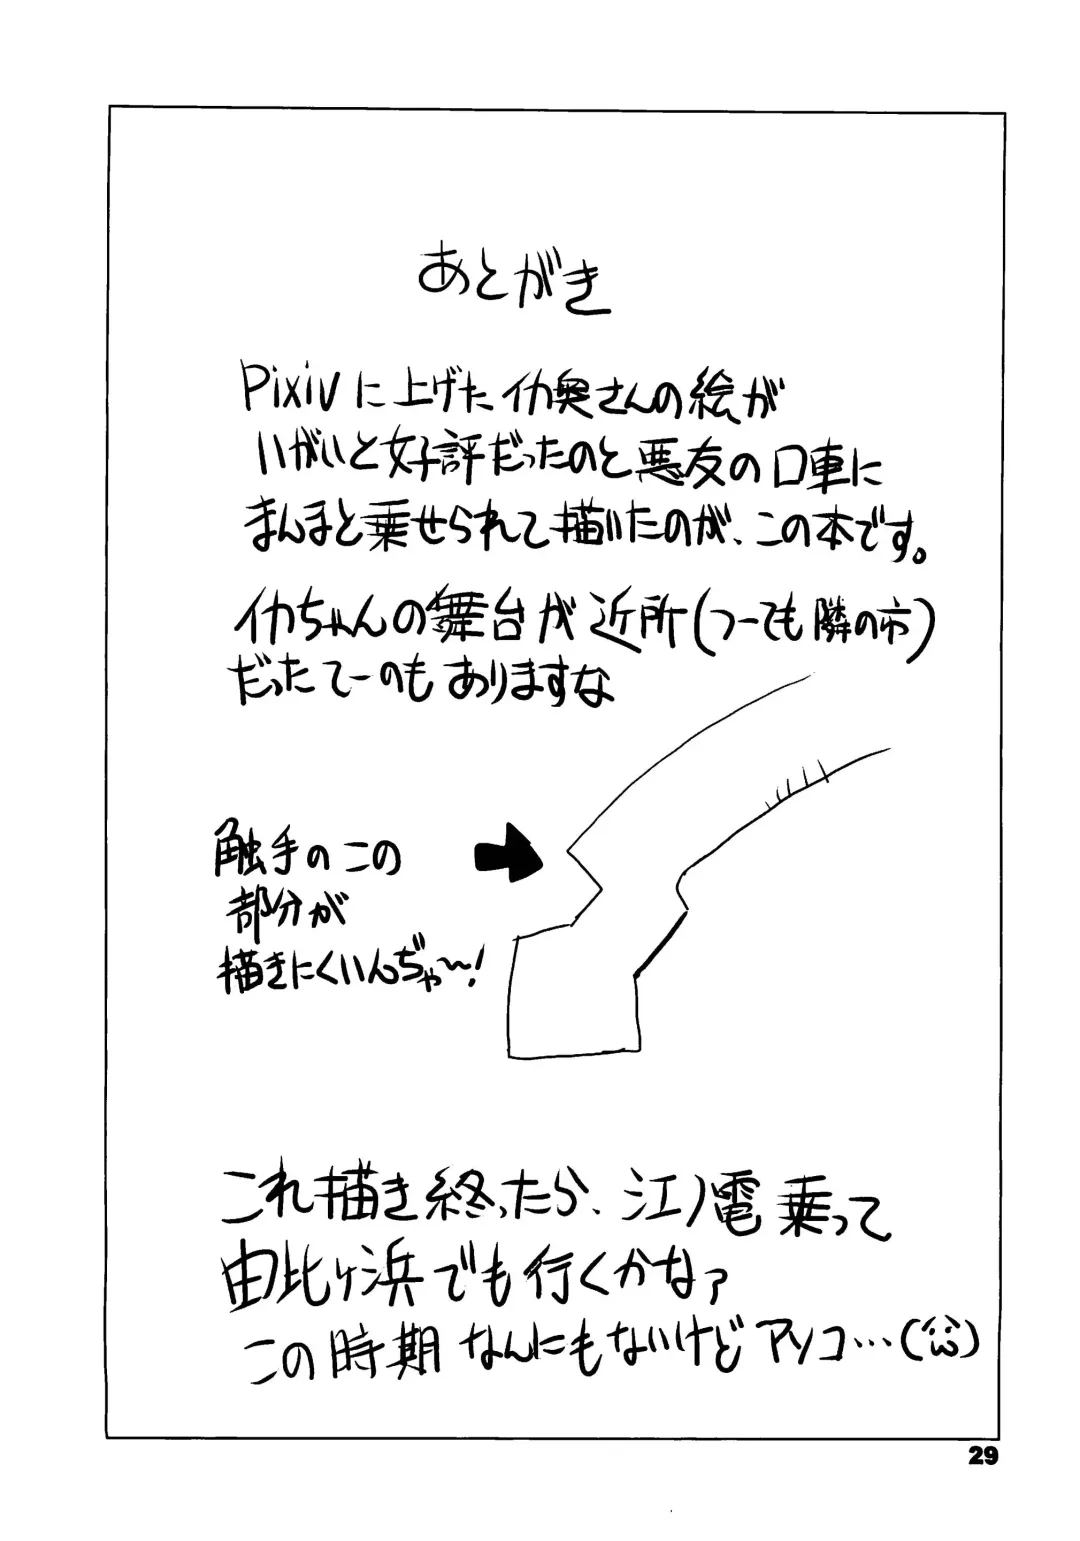 あとがき
Pixivに上げたイカ奥さんの絵が
いがいと好評だったのと悪友の口車に
まんまと乗せられて描いたのが、この本です。
イカちゃんの舞台が近所(つーても隣の市)
だったてーのもありますな
触手のこの
部分が
描きにくいんぢゃ〜!
これ描き終ったら、江ノ電乗って
由比ヶ浜でも行くかなァ
この時期なんにもないけどアソコ…(´ω`)
29